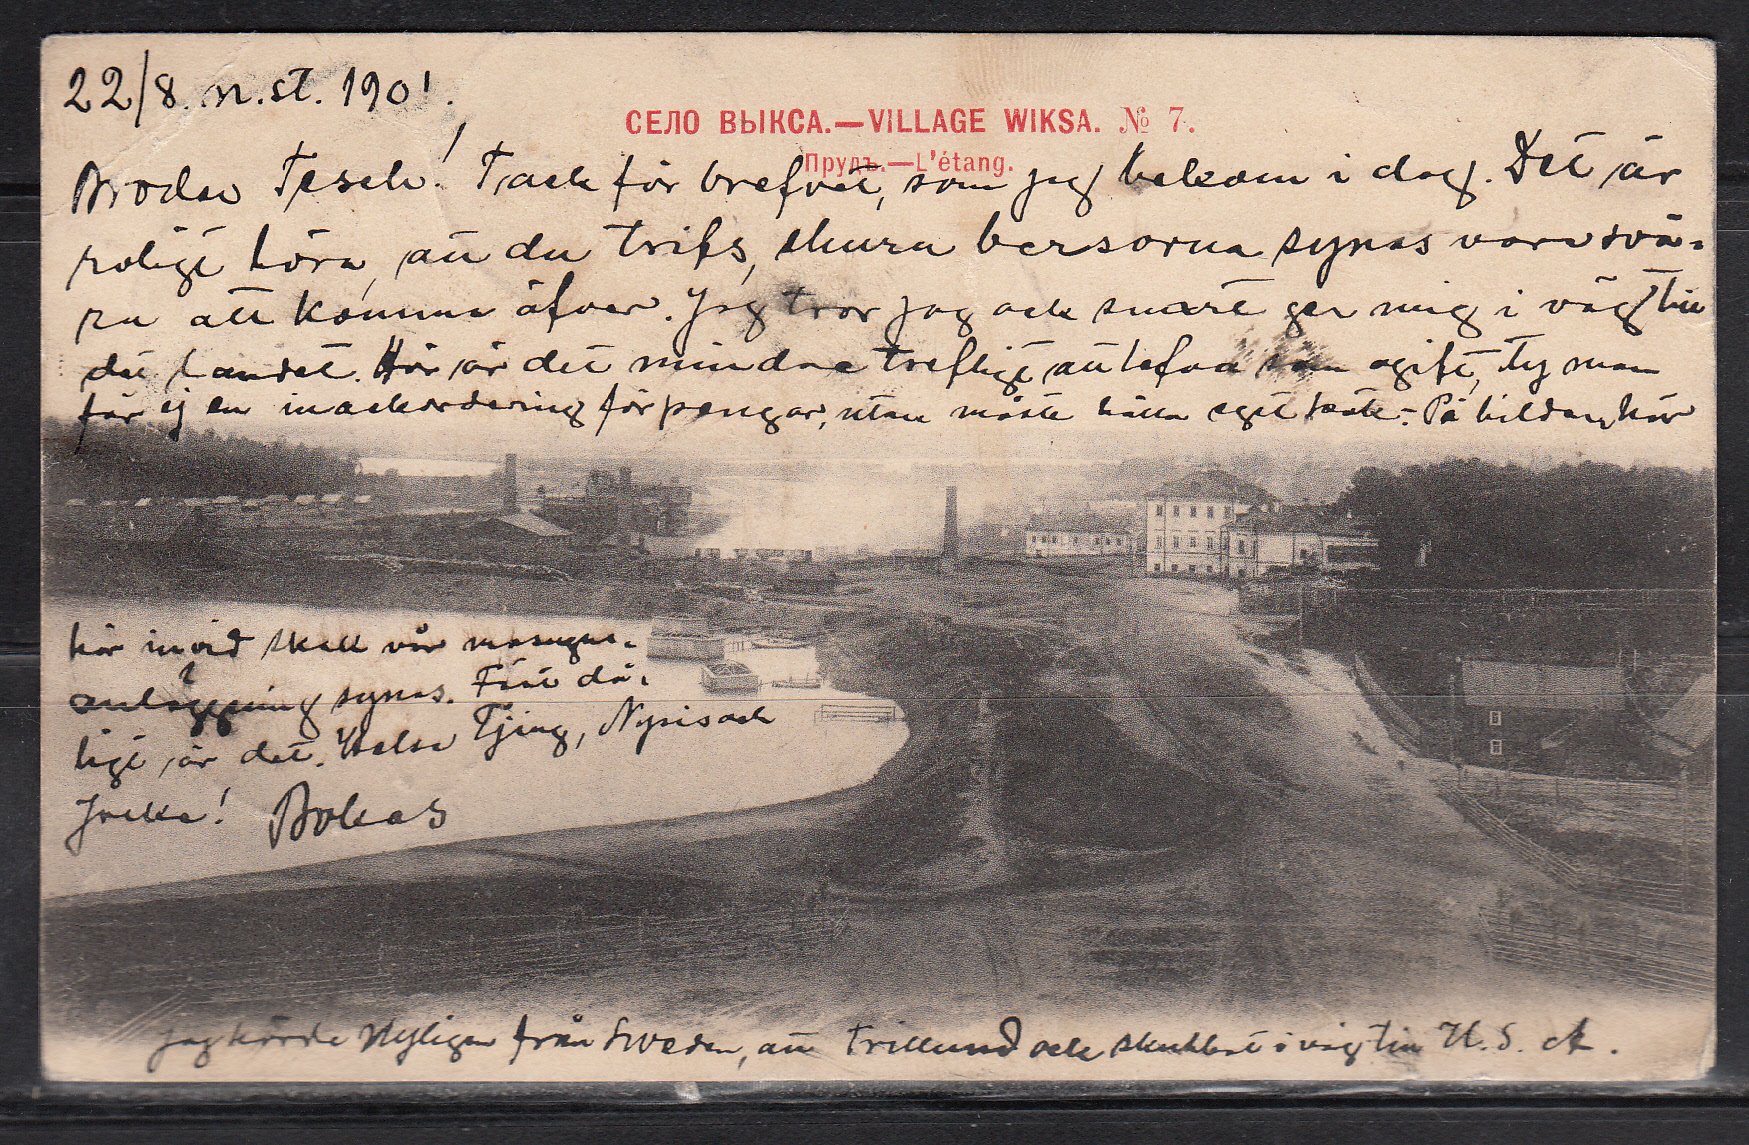 22/8. n. st. 1901.
СЕЛО ВЫКСА.—VILLAGE WIKSA. № 7.
Прудъ.—L'étang.
Broder Tesch! Tack för brefvet, som jag bekom i dag. Det är
roligt höra, att du trifs, ehuru bersorna synas vara svå-
ra att komma öfver. Jag tror jag ock snart ger mig i väg till
det landet. Här är det mindre trefligt att lefva som ogift, ty man
får ej en inackordering för pengar, utan måste hålla eget kök. På bilden här
här invid skall vår masugns-
anläggning synas. Fast då-
ligt är det. Helsa Tjing, Nysis och
Jocke! Bokas
Jag hörde nyligen från Sweden, att Trillund ock skubbat i väg till U. S. A.